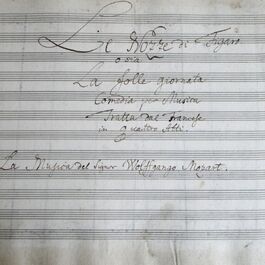 Le Nozze di Figaro
o sia
La folle giornata
Comedia per Musica
Tratta dal Francese
in Quattro Atti.
La Musica del Signor Wolffgango Mozart.